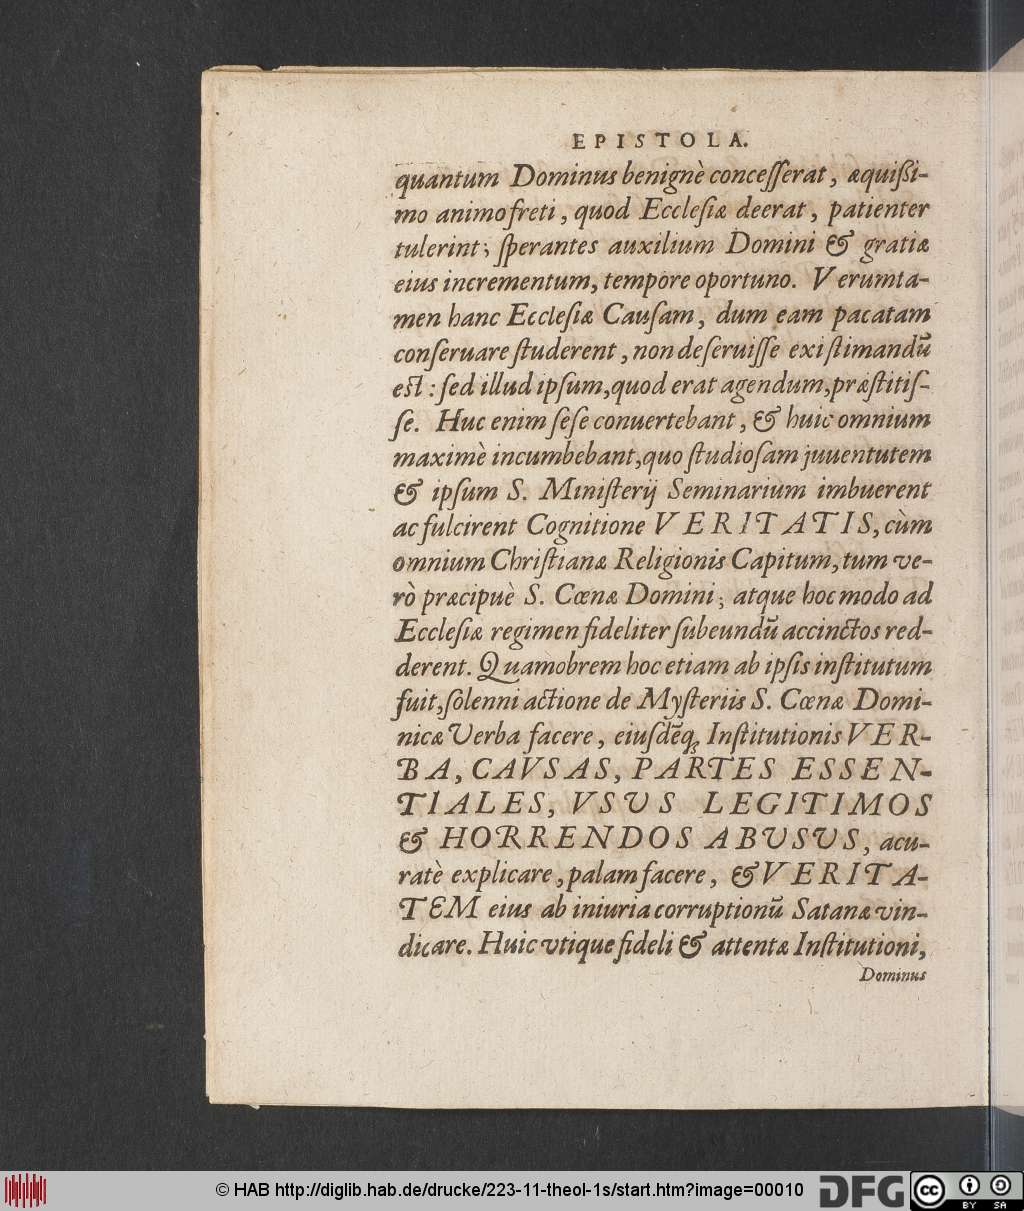 EPISTOLA.
quantum Dominus benignè concesserat, æquißi-
mo animo freti, quod Ecclesiæ deerat, patienter
tulerint; sperantes auxilium Domini & gratiæ
eius incrementum, tempore oportuno. Verumta-
men hanc Ecclesiæ Causam, dum eam pacatam
conseruare studerent, non deseruisse existimandū
est: sed illud ipsum, quod erat agendum, præstitis-
se. Huc enim sese conuertebant, & huic omnium
maximè incumbebant, quo studiosam juuentutem
& ipsum S. Ministerij Seminarium imbuerent
ac fulcirent Cognitione VERITATIS, cùm
omnium Christianæ Religionis Capitum, tum ve-
rò præcipuè S. Cœnæ Domini; atque hoc modo ad
Ecclesiæ regimen fideliter subeundū accinctos red-
derent. Quamobrem hoc etiam ab ipsis institutum
fuit, solenni actione de Mysteriis S. Cœnæ Domi-
nicæ Verba facere, eiusdēq; Institutionis VER-
BA, CAVSAS, PARTES ESSEN-
TIALES, VSUS LEGITIMOS
& HORRENDOS ABUSUS, acu-
ratè explicare, palam facere, & VERITA-
TEM eius ab iniuria corruptionū Satanæ vin-
dicare. Huic vtique fideli & attentæ Institutioni,
Dominus
© HAB http://diglib.hab.de/drucke/223-11-theol-1s/start.htm?image=00010
DFG
cc BY SA